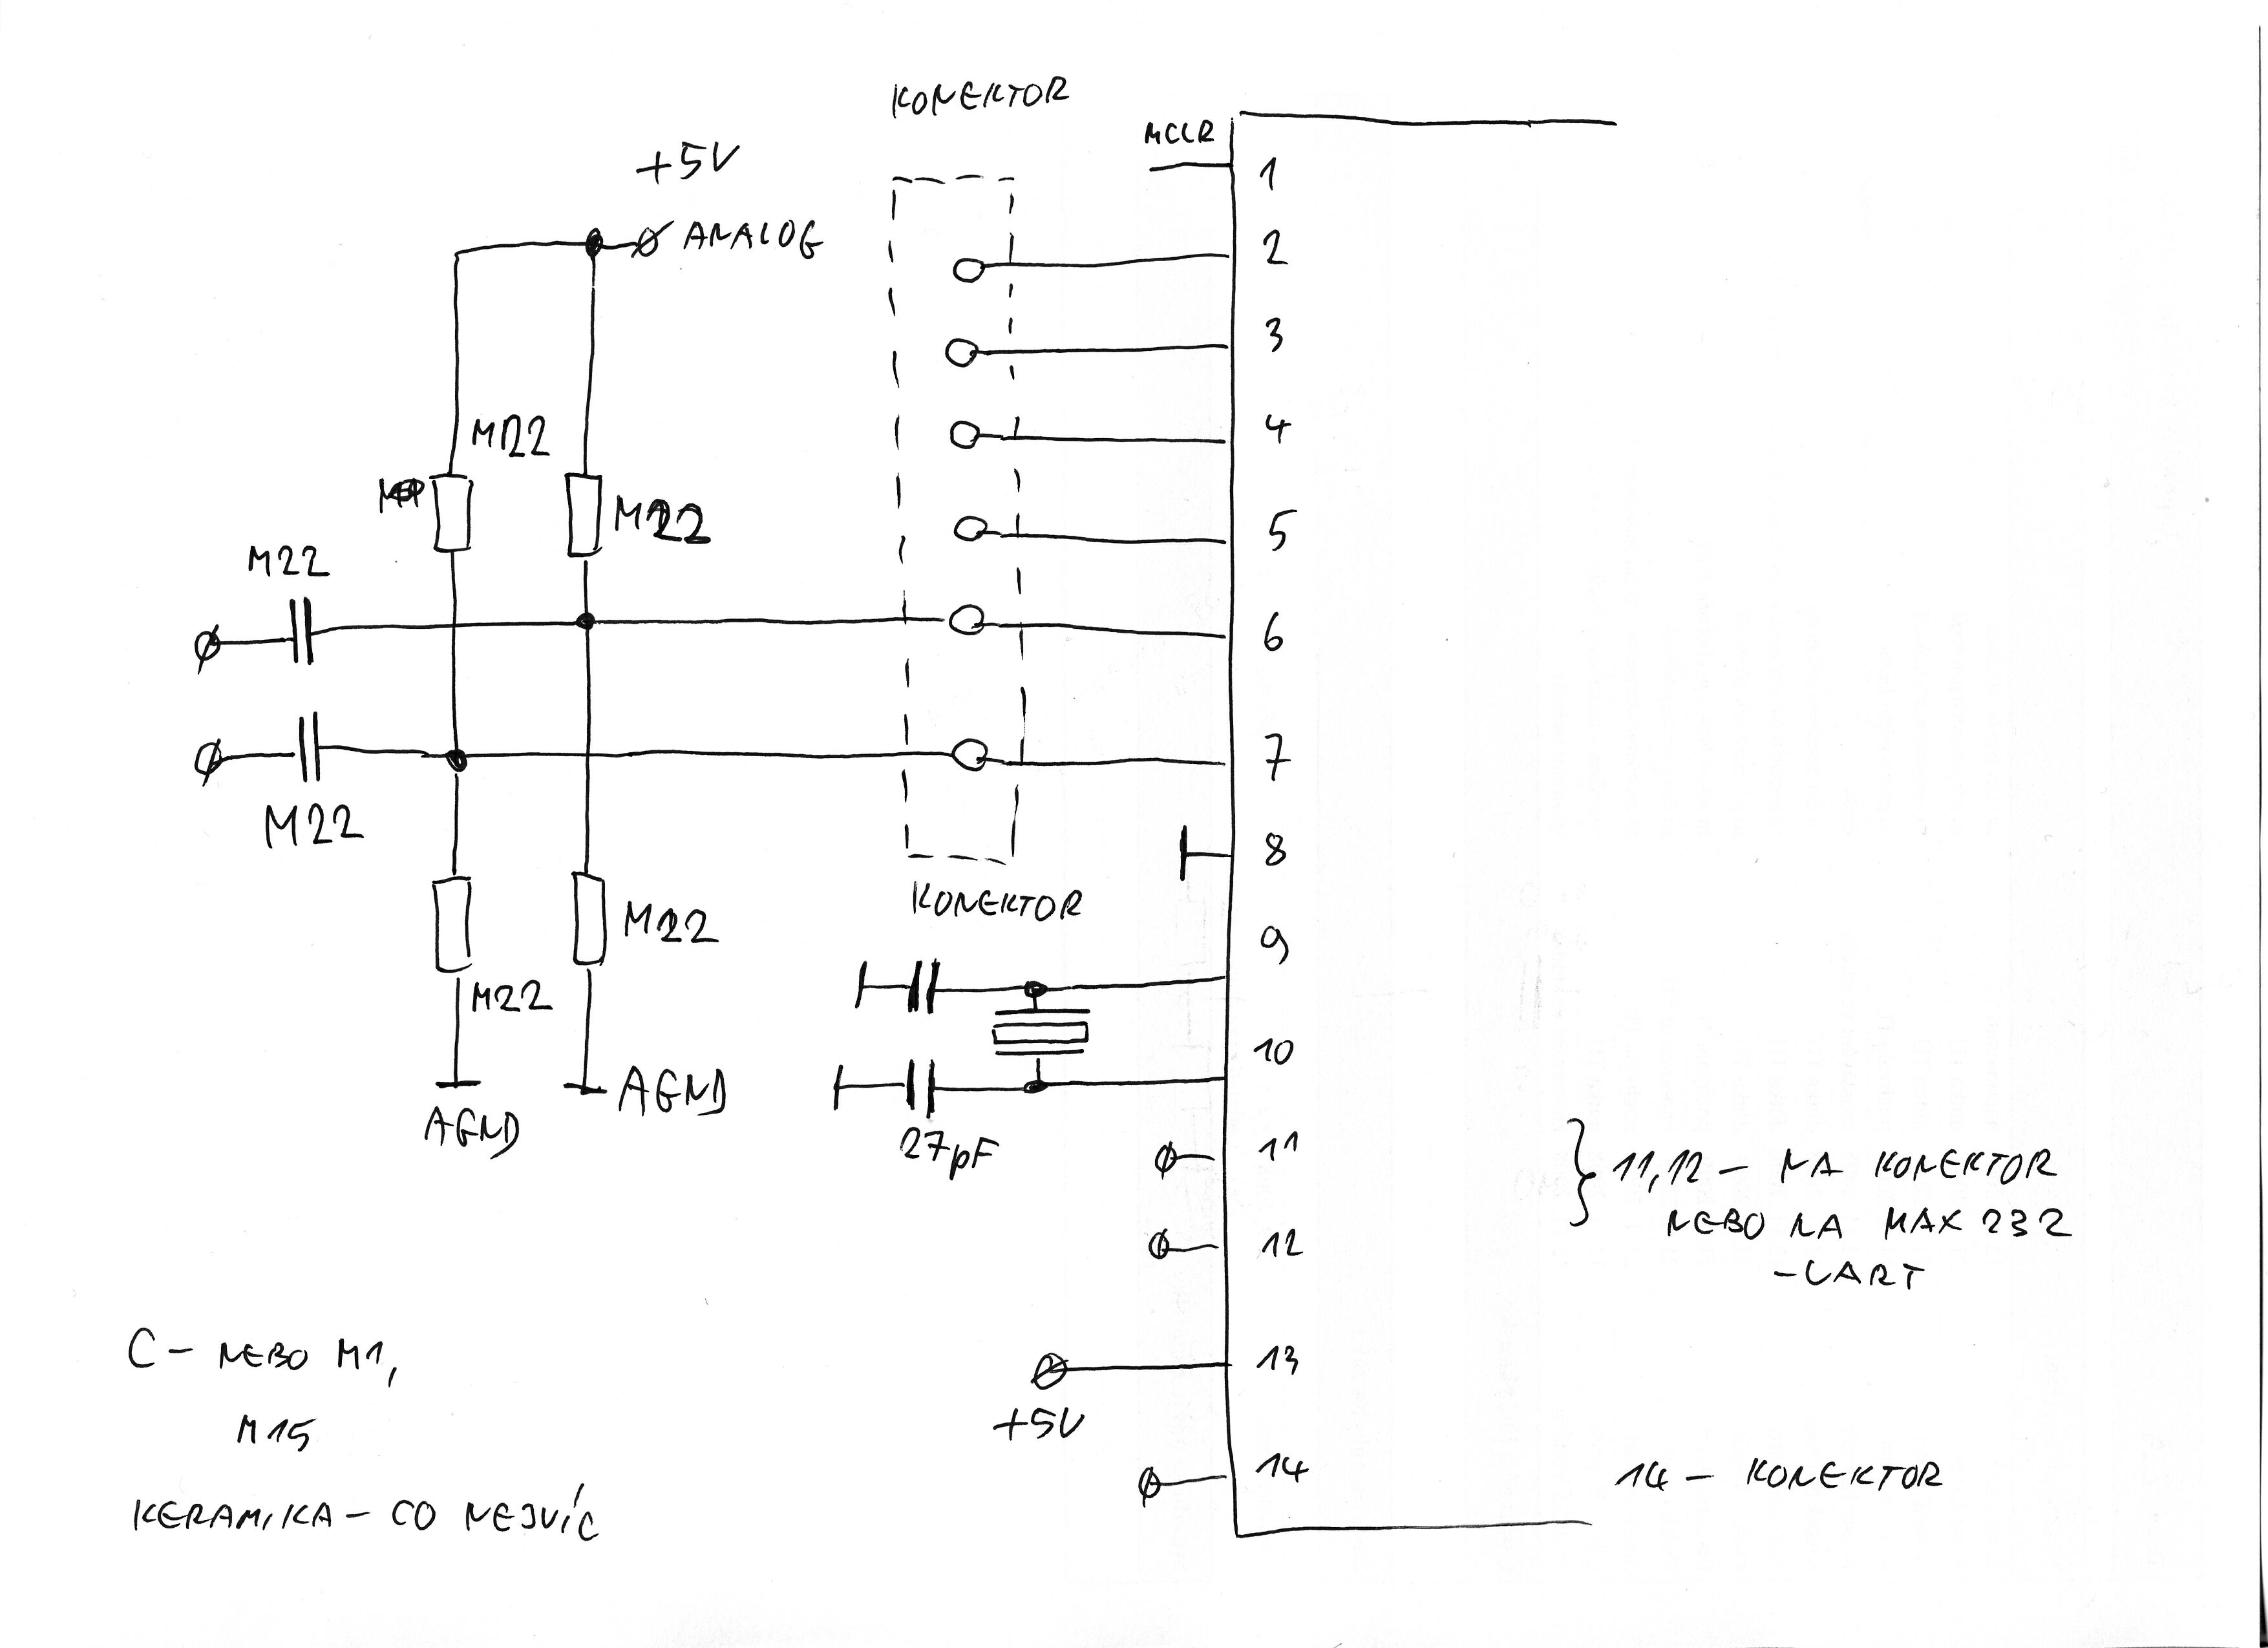 KONEKTOR
MCLR
+5V
ANALOG
1
2
3
4
5
6
7
8
9
10
11
12
13
14
M22
M22
M22
M22
M22
M22
AGND
AGND
KONEKTOR
27pF
+5V
11,12 – NA KONEKTOR
NEBO NA MAX 232
– UART
14 – KONEKTOR
C – NEBO M1,
M15
KERAMIKA – CO NEJVÍC